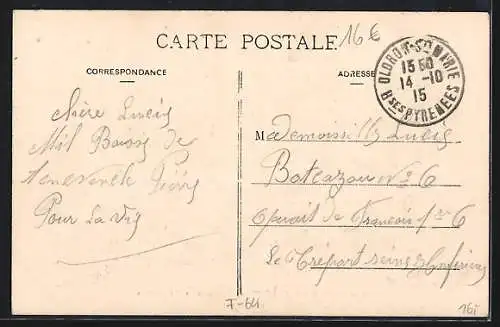 CARTE POSTALE
16€
CORRESPONDANCE
ADRESSE
OLORON-Ste MARIE
15 50
14 -10
15
Bses PYRENEES
chère Lucie
Mil Baiss de
Pour La vie
Mademoiselle Lucie
No 6
quait de Francois 1er 6
Le Tréport seine
F-64